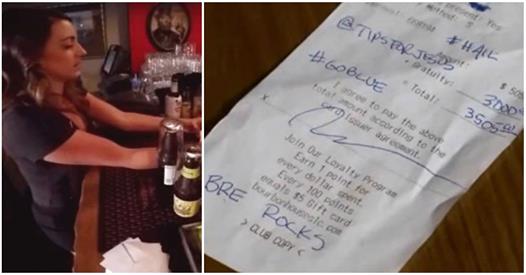 present: Yes
@TIPSFORJESUS
#HAIL
Amount: $ 505
Gratuity: 3000
= Total: 3505
#GOBLUE
I agree to pay the above
total amount according to the
card issuer agreement.
X
Join Our Loyalty Program
Earn 1 point for
every dollar spent.
Every 100 points
equals $5 Gift card
bourbonhouseslc.com
BRE ROCKS
> CLUB COPY <